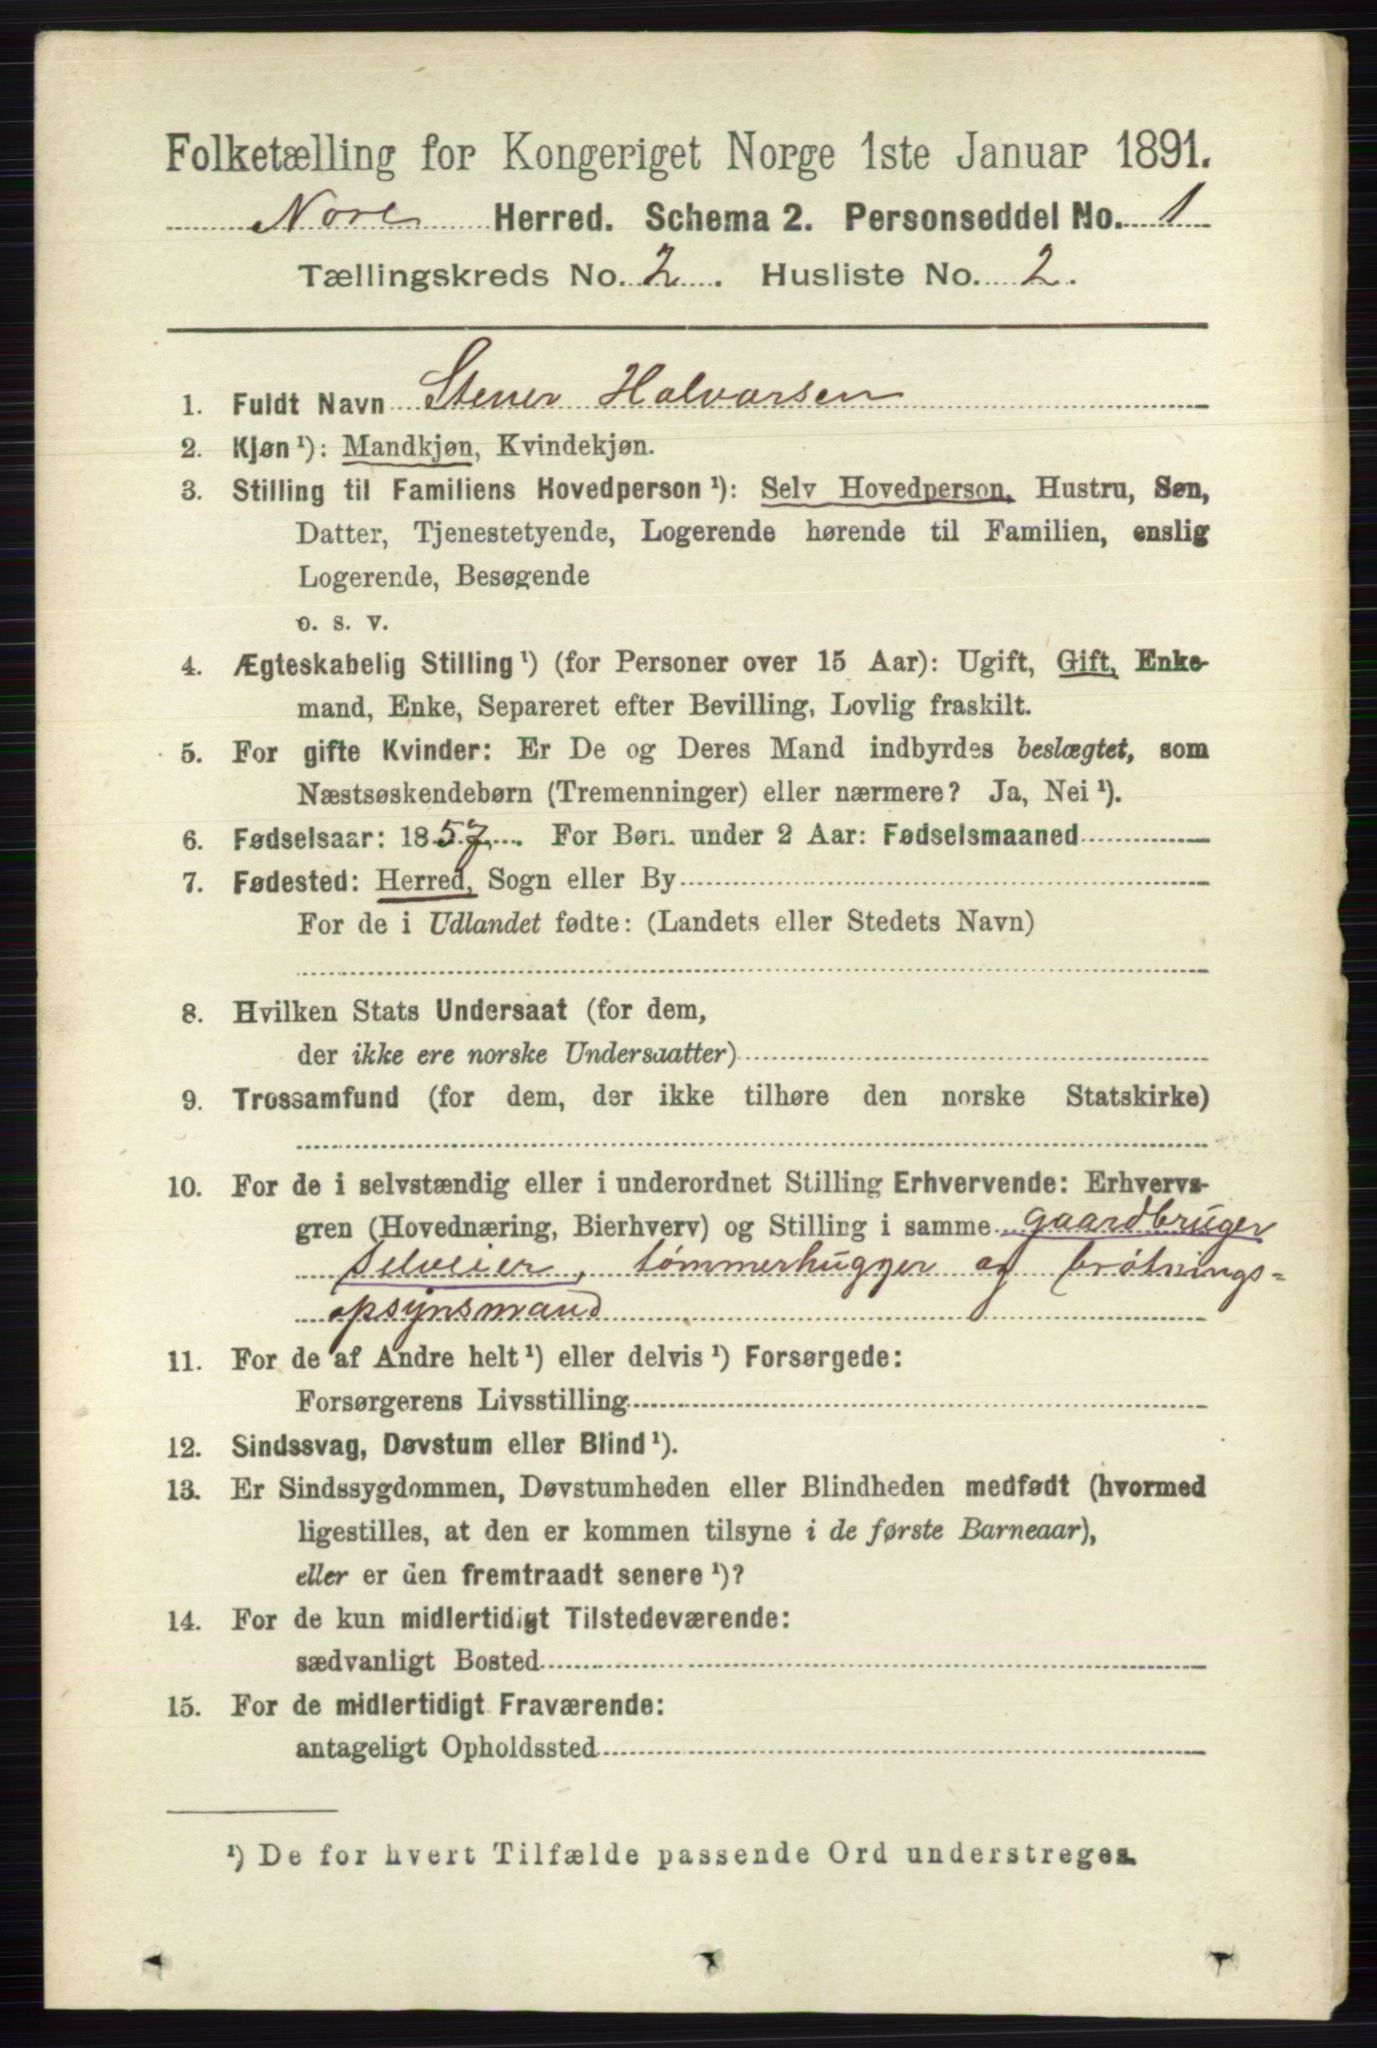 Folketælling for Kongeriget Norge 1ste Januar 1891.
Nore Herred. Schema 2. Personseddel No. 1
Tællingskreds No. 2. Husliste No. 2.
1. Fuldt Navn Stener Halvorsen
2. Kjøn¹): Mandkjøn, Kvindekjøn.
3. Stilling til Familiens Hovedperson¹): Selv Hovedperson, Hustru, Søn,
Datter, Tjenestetyende, Logerende hørende til Familien, enslig
Logerende, Besøgende
o. s. v.
4. Ægteskabelig Stilling¹) (for Personer over 15 Aar): Ugift, Gift, Enke-
mand, Enke, Separeret efter Bevilling, Lovlig fraskilt.
5. For gifte Kvinder: Er De og Deres Mand indbyrdes beslægtet, som
Næstsøskendebørn (Tremenninger) eller nærmere? Ja, Nei¹).
6. Fødselsaar: 1857. For Børn under 2 Aar: Fødselsmaaned
7. Fødested: Herred, Sogn eller By
For de i Udlandet fødte: (Landets eller Stedets Navn)
8. Hvilken Stats Undersaat (for dem,
der ikke ere norske Undersaatter)
9. Trossamfund (for dem, der ikke tilhøre den norske Statskirke)
10. For de i selvstændig eller i underordnet Stilling Erhvervende: Erhvervs-
gren (Hovednæring, Bierhverv) og Stilling i samme gaardbruger
selveier, tømmerhugger og brøtnings-
opsynsmand
11. For de af Andre helt¹) eller delvis¹) Forsørgede:
Forsørgerens Livsstilling
12. Sindssvag, Døvstum eller Blind¹).
13. Er Sindssygdommen, Døvstumheden eller Blindheden medfødt (hvormed
ligestilles, at den er kommen tilsyne i de første Barneaar),
eller er den fremtraadt senere¹)?
14. For de kun midlertidigt Tilstedeværende:
sædvanligt Bosted
15. For de midlertidigt Fraværende:
antageligt Opholdssted
¹) De for hvert Tilfælde passende Ord understreges.